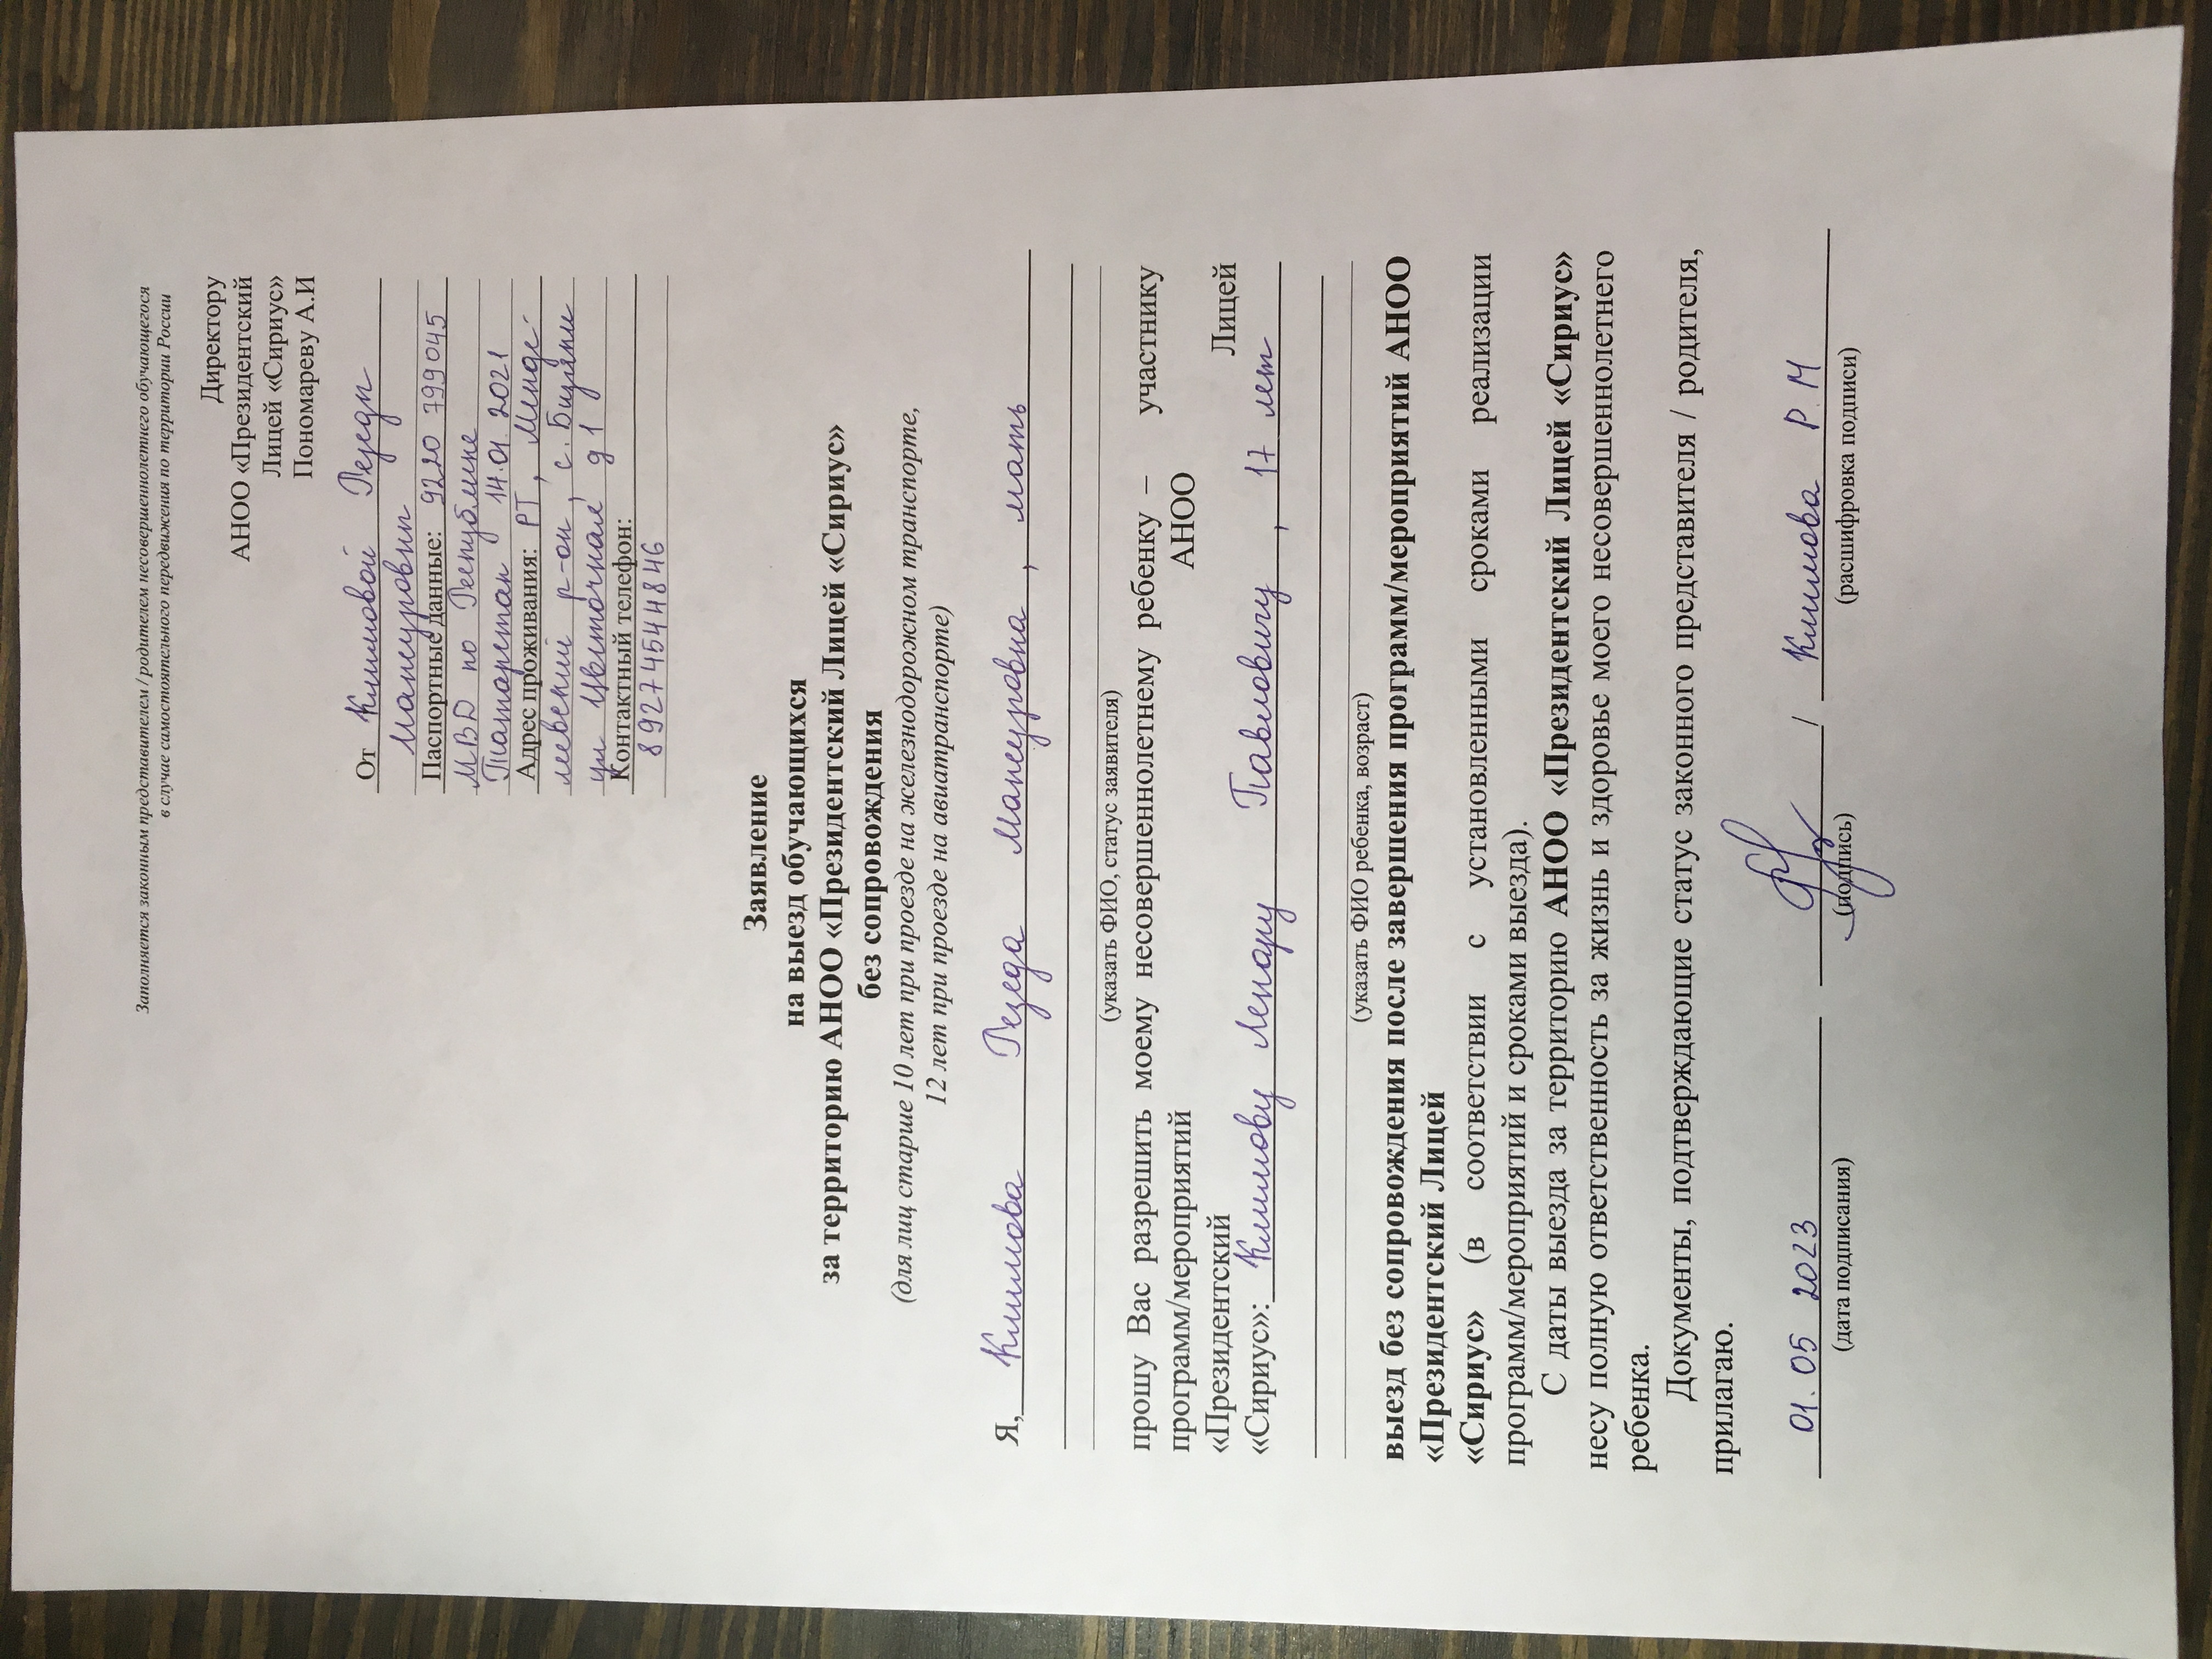 Заполняется законным представителем / родителем несовершеннолетнего обучающегося
в случае самостоятельного передвижения по территории России
Директору
АНОО «Президентский
Лицей «Сириус»
Пономареву А.И
От Климовой Резеды
Мансуровны
Паспортные данные: 9220 799045
МВД по Республике
Татарстан 14.01.2021
Адрес проживания: РТ, Менде-
леевский р-он, с. Бизяки
ул Цветочная д 1
Контактный телефон:
89274544846
Заявление
на выезд обучающихся
за территорию АНОО «Президентский Лицей «Сириус»
без сопровождения
(для лиц старше 10 лет при проезде на железнодорожном транспорте,
12 лет при проезде на авиатранспорте)
Я, Климова Резеда Мансуровна, мать
(указать ФИО, статус заявителя)
прошу Вас разрешить моему несовершеннолетнему ребенку – участнику
программ/мероприятий АНОО
«Президентский Лицей
«Сириус»: Климову Ленару Павловичу, 17 лет
(указать ФИО ребенка, возраст)
выезд без сопровождения после завершения программ/мероприятий АНОО
«Президентский Лицей
«Сириус» (в соответствии с установленными сроками реализации
программ/мероприятий и сроками выезда).
С даты выезда за территорию АНОО «Президентский Лицей «Сириус»
несу полную ответственность за жизнь и здоровье моего несовершеннолетнего
ребенка.
Документы, подтверждающие статус законного представителя / родителя,
прилагаю.
01.05 2023 / Климова Р.М
(дата подписания) (подпись) (расшифровка подписи)